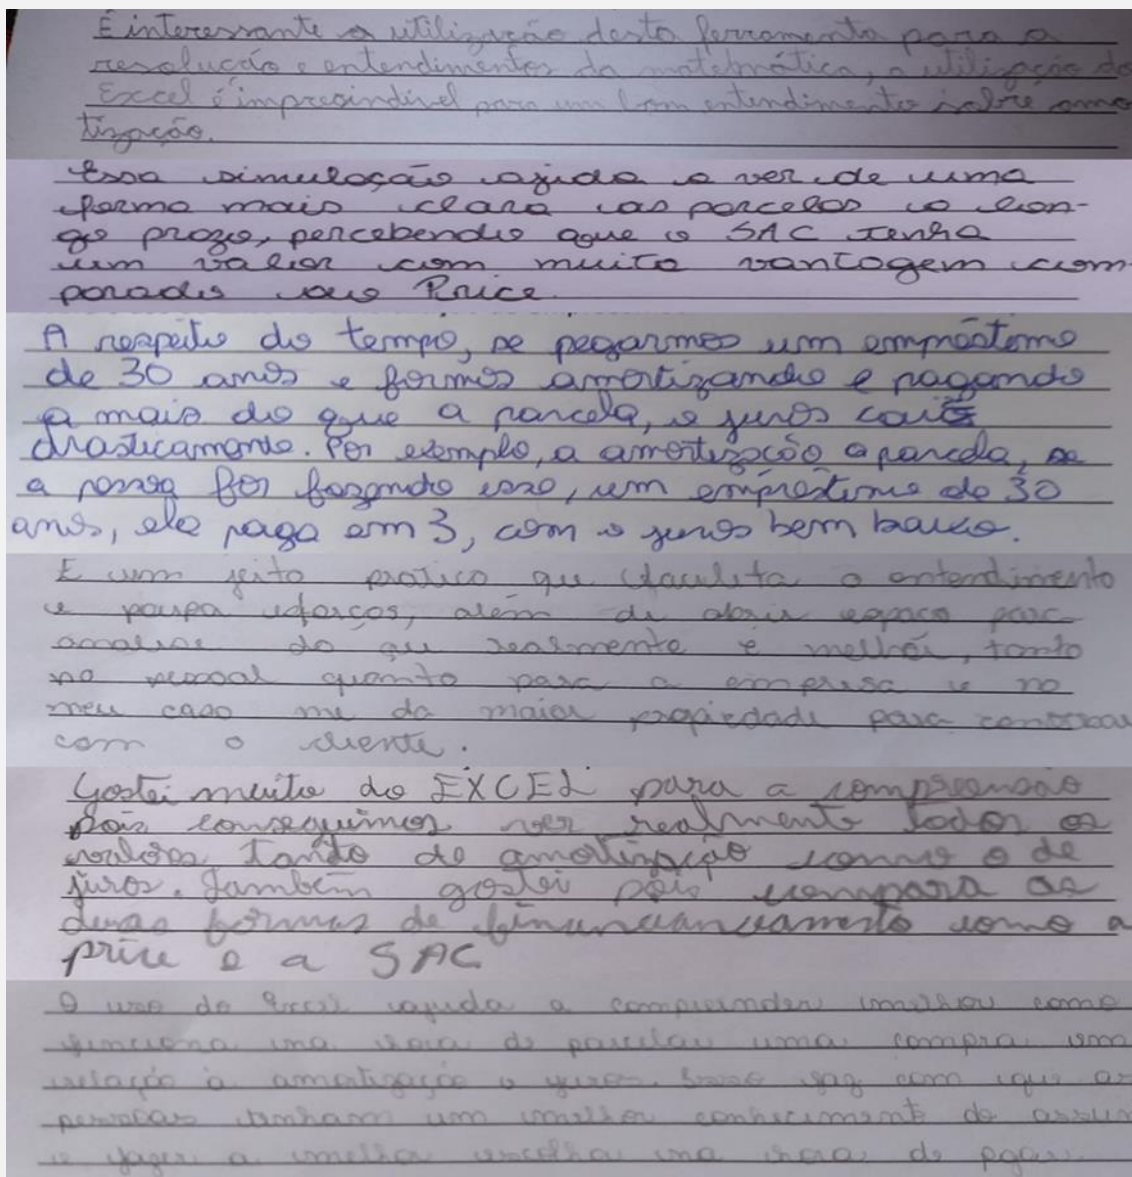 É interessante a utilização desta ferramenta para a
resolução e entendimentos da matemática, a utilização do
Excel é imprecindível para um bom entendimento sobre amo
tização.
Essa simulação ajuda a ver de uma
forma mais clara as parcelas a lon-
go prazo, percebendo que o SAC tenha
um valor com muita vantagem com
parado ao Price.
A respeito do tempo, se pegarmos um empréstimo
de 30 anos e formos amortizando e pagando
a mais do que a parcela, o juros cai
drasticamente. Por exemplo, a amortização a parcela, se
a pessoa for fazendo isso, um empréstimo de 30
anos, ele paga em 3, com o juros bem baixo.
É um jeito pratico que faculita o entendimento
e poupa eforços, além de abrir espaço para
analise do que realmente é melhor, tanto
no pessoal quanto para a empresa e no
meu caso me da maior propiedade para
com o cliente.
Gostei muito do EXCEL para a compreensão
pois conseguimos ver realmente todos os
valores tanto de amortização como o de
juros. Também gostei pois compara as
duas formas de como a
price e a SAC
O uso do Excel ajuda a compreender melhor como
funciona na hora de parcelar uma compra em
relação a amortização e juros. Isso faz com que as
pessoas tenham um melhor conhecimento do assun
e fazer a melhor escolha na hora de pgar.